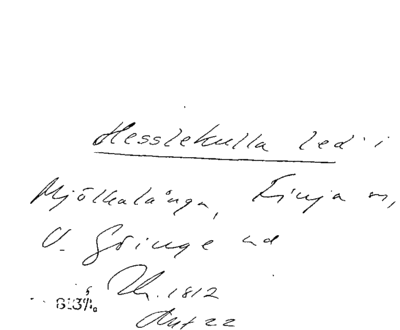 Hesslekulla led i
Mjölkalånga, Finja sn,
V. Göinge hd
Th. 1812
Ant 22